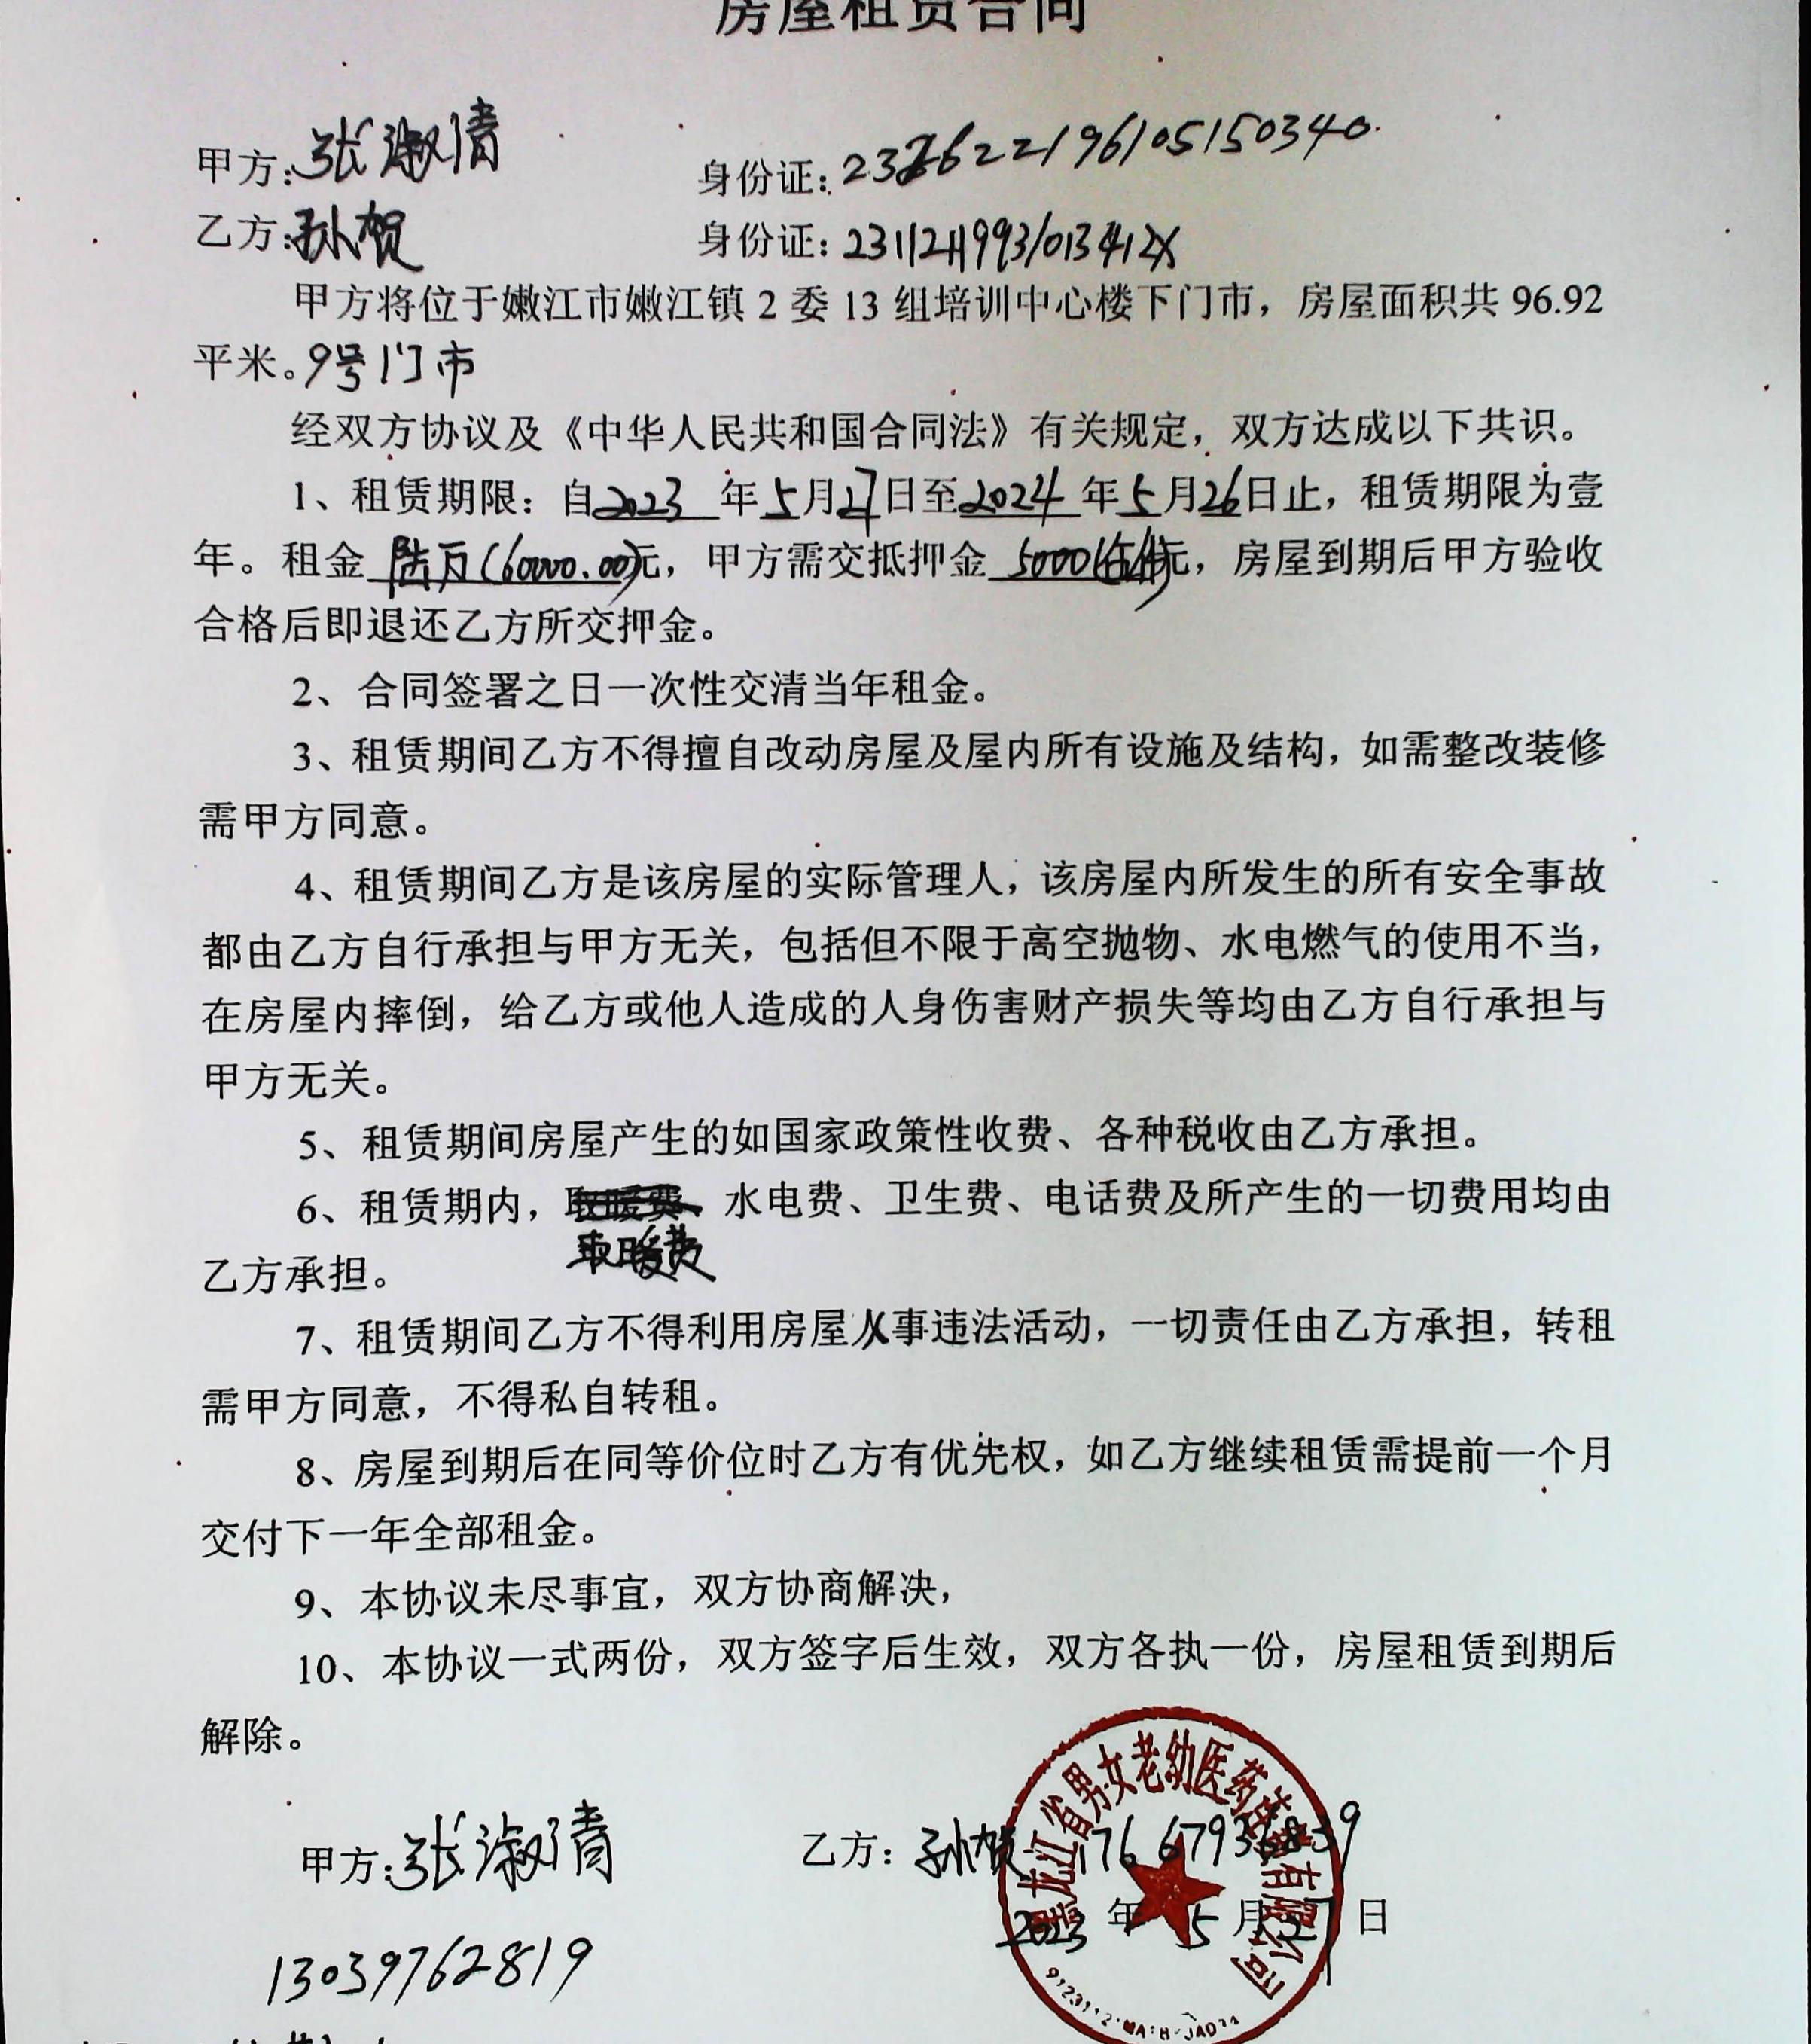 房屋租赁合同
甲方:张淑清 身份证:232622196105150340
乙方:孙贺 身份证:23112119931013412X
甲方将位于嫩江市嫩江镇 2 委 13 组培训中心楼下门市，房屋面积共 96.92
平米。9号门市
经双方协议及《中华人民共和国合同法》有关规定，双方达成以下共识。
1、租赁期限：自2023 年5月27日至2024 年5月26日止，租赁期限为壹
年。租金 陆万(60000.00)元，甲方需交抵押金 5000(伍仟)元，房屋到期后甲方验收
合格后即退还乙方所交押金。
2、合同签署之日一次性交清当年租金。
3、租赁期间乙方不得擅自改动房屋及屋内所有设施及结构，如需整改装修
需甲方同意。
4、租赁期间乙方是该房屋的实际管理人，该房屋内所发生的所有安全事故
都由乙方自行承担与甲方无关，包括但不限于高空抛物、水电燃气的使用不当，
在房屋内摔倒，给乙方或他人造成的人身伤害财产损失等均由乙方自行承担与
甲方无关。
5、租赁期间房屋产生的如国家政策性收费、各种税收由乙方承担。
6、租赁期内，取暖费、水电费、卫生费、电话费及所产生的一切费用均由
取暖费
乙方承担。
7、租赁期间乙方不得利用房屋从事违法活动，一切责任由乙方承担，转租
需甲方同意，不得私自转租。
8、房屋到期后在同等价位时乙方有优先权，如乙方继续租赁需提前一个月
交付下一年全部租金。
9、本协议未尽事宜，双方协商解决，
10、本协议一式两份，双方签字后生效，双方各执一份，房屋租赁到期后
解除。
黑龙江省男女老幼医药连锁有限公司
甲方:张淑清 乙方：孙贺 17667936839
2023 年 5 月 27 日
13039762819